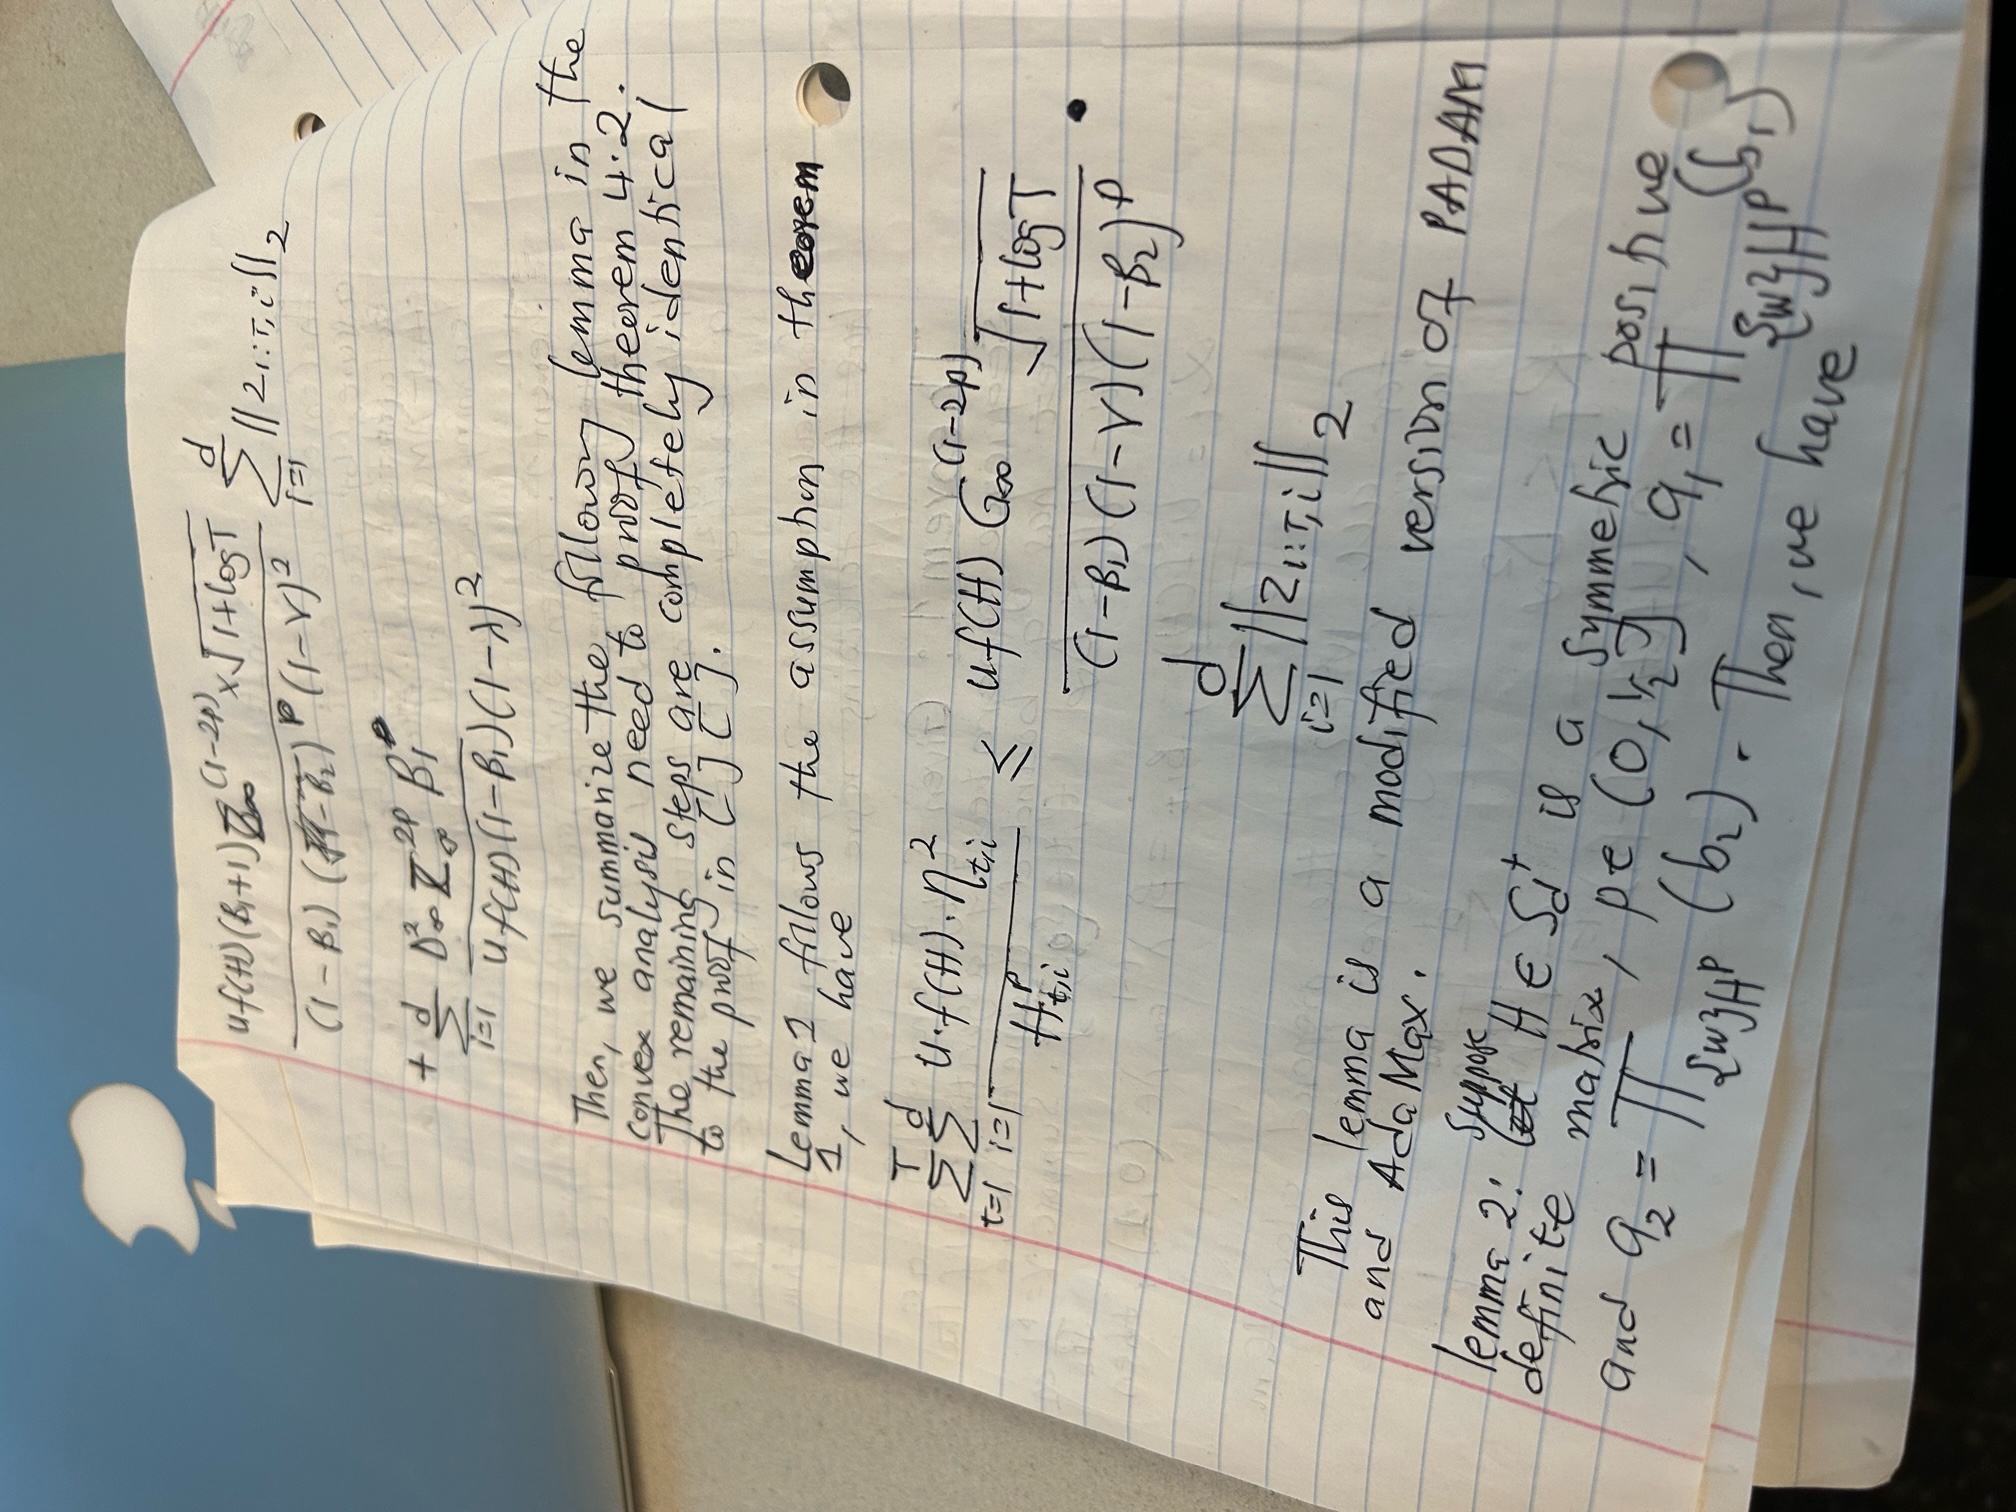 uf(H)(β₁+1)Z∞^(1-2p) × √(1+logT) / (1-β₁)(√(1-β₂))^p (1-γ)² ∑_{i=1}^{d} ||z_{1:T,i}||₂
+ ∑_{i=1}^{d} D∞² Z∞^{2p} β₁ / uf(H)(1-β₁)(1-λ)²
Then, we summarize the following lemma in the
convex analysis need to proof theorem 4.2.
The remaining steps are completely identical
to the proof in [ ] [ ].
Lemma 1 follows the assumption in theorem
1, we have
∑_{t=1}^{T} ∑_{i=1}^{d} u·f(H)·η²_{t,i} / H^p_{t,i} ≤ uf(H) G∞^(1-2p) √(1+logT) / (1-β₁)(1-γ)(1-β₂)^p ·
∑_{i=1}^{d} ||z_{1:T,i}||₂
This lemma is a modified version of PADAM
and AdaMax.
lemma 2: suppose H ∈ S_d^+ is a symmetric positive
definite matrix, p∈ (0,1/2], a₁ = ∏_{{w}H^p} (b₁)
and a₂ = ∏_{{w}H^p} (b₂). Then, we have